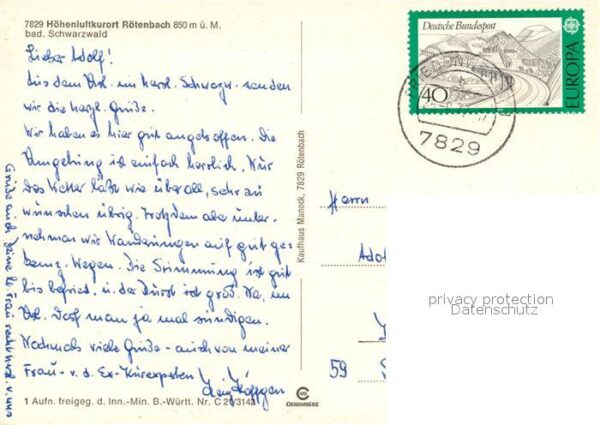 7829 Höhenluftkurort Rötenbach 850 m ü. M.
bad. Schwarzwald
Lieber Adolf!
Aus dem Url. im herrl. Schwarzw. senden
wir die herzl. Grüße.
Wir haben es hier gut angetroffen. Die
Umgebung ist einfach herrlich. Nur
das Wetter läßt wie überall, sehr zu
wünschen übrig. Trotzdem aber unter-
nehmen wir Wanderungen auf gut
Wegen. Die Stimmung ist gut
bis befried. u. der Durst ist groß. Na, im
Url. darf man ja mal sündigen.
Nochmals viele Grüße - auch von meiner
Frau - v. d. Ex-
Grüße auch Deine lb. Frau recht herzl. v. uns
1 Aufn. freigeg. d. Inn.-Min. B.-Württ. Nr. C 20/3142
Kaufhaus Manock, 7829 Rötenbach
CHROMOLUX
Deutsche Bundespost
40
EUROPA
CEPT
7829
Herrn
Adol
59
privacy protection
Datenschutz